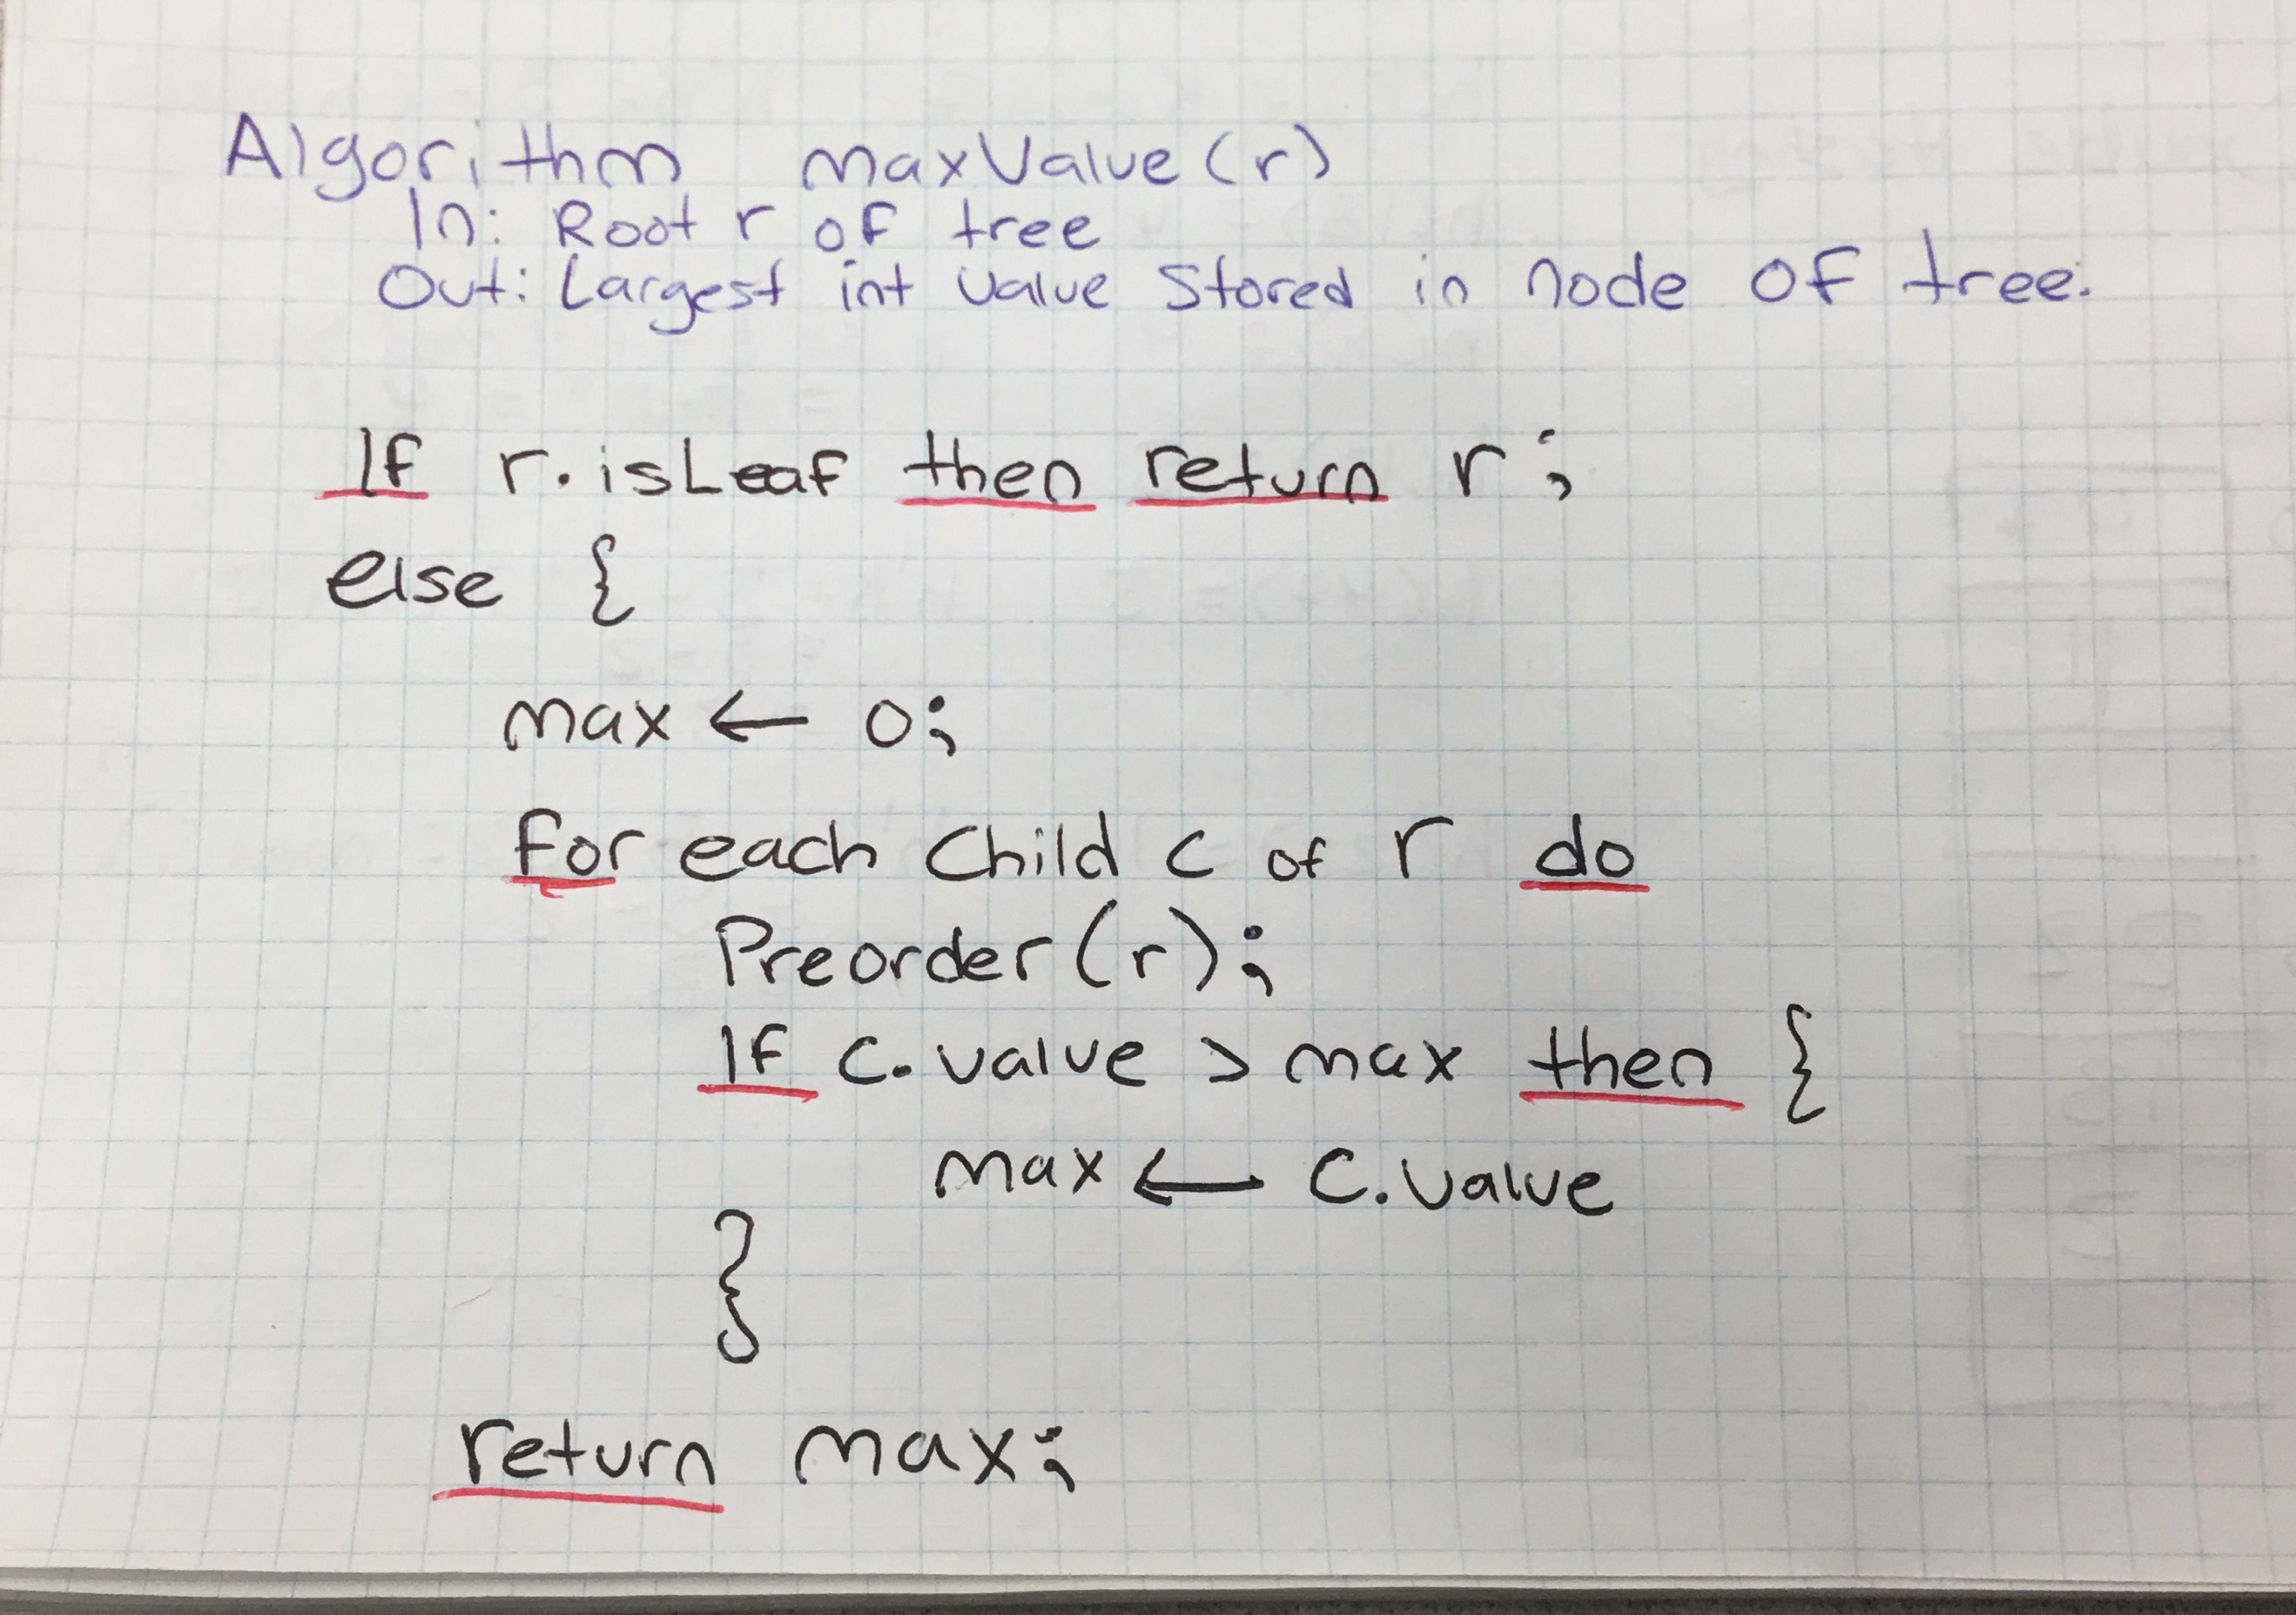 Algorithm maxValue(r)
In: Root r of tree
Out: Largest int value stored in node of tree.
If r.isLeaf then return r;
else {
max ← 0;
for each child c of r do
Preorder(r);
If c.value > max then {
max ← c.value
}
return max;